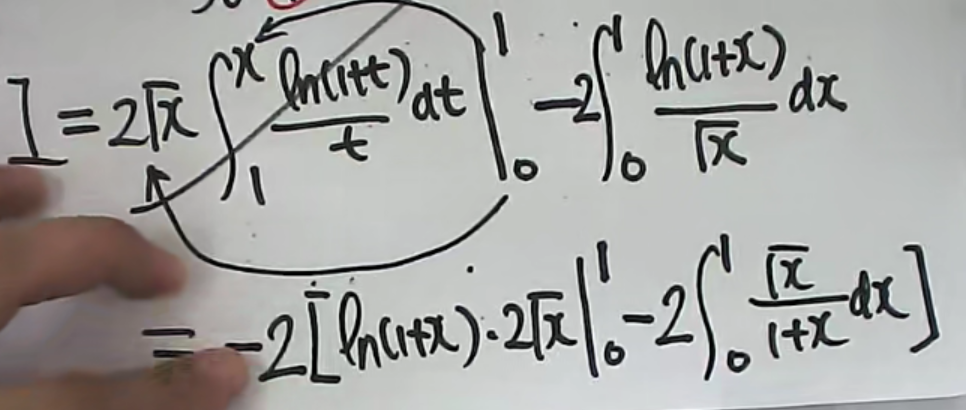 I = 2√x ∫₁ˣ ln(1+t)/t dt |₀¹ - 2∫₀¹ ln(1+x)/√x dx
= -2[ln(1+x)·2√x |₀¹ - 2∫₀¹ √x/(1+x) dx]